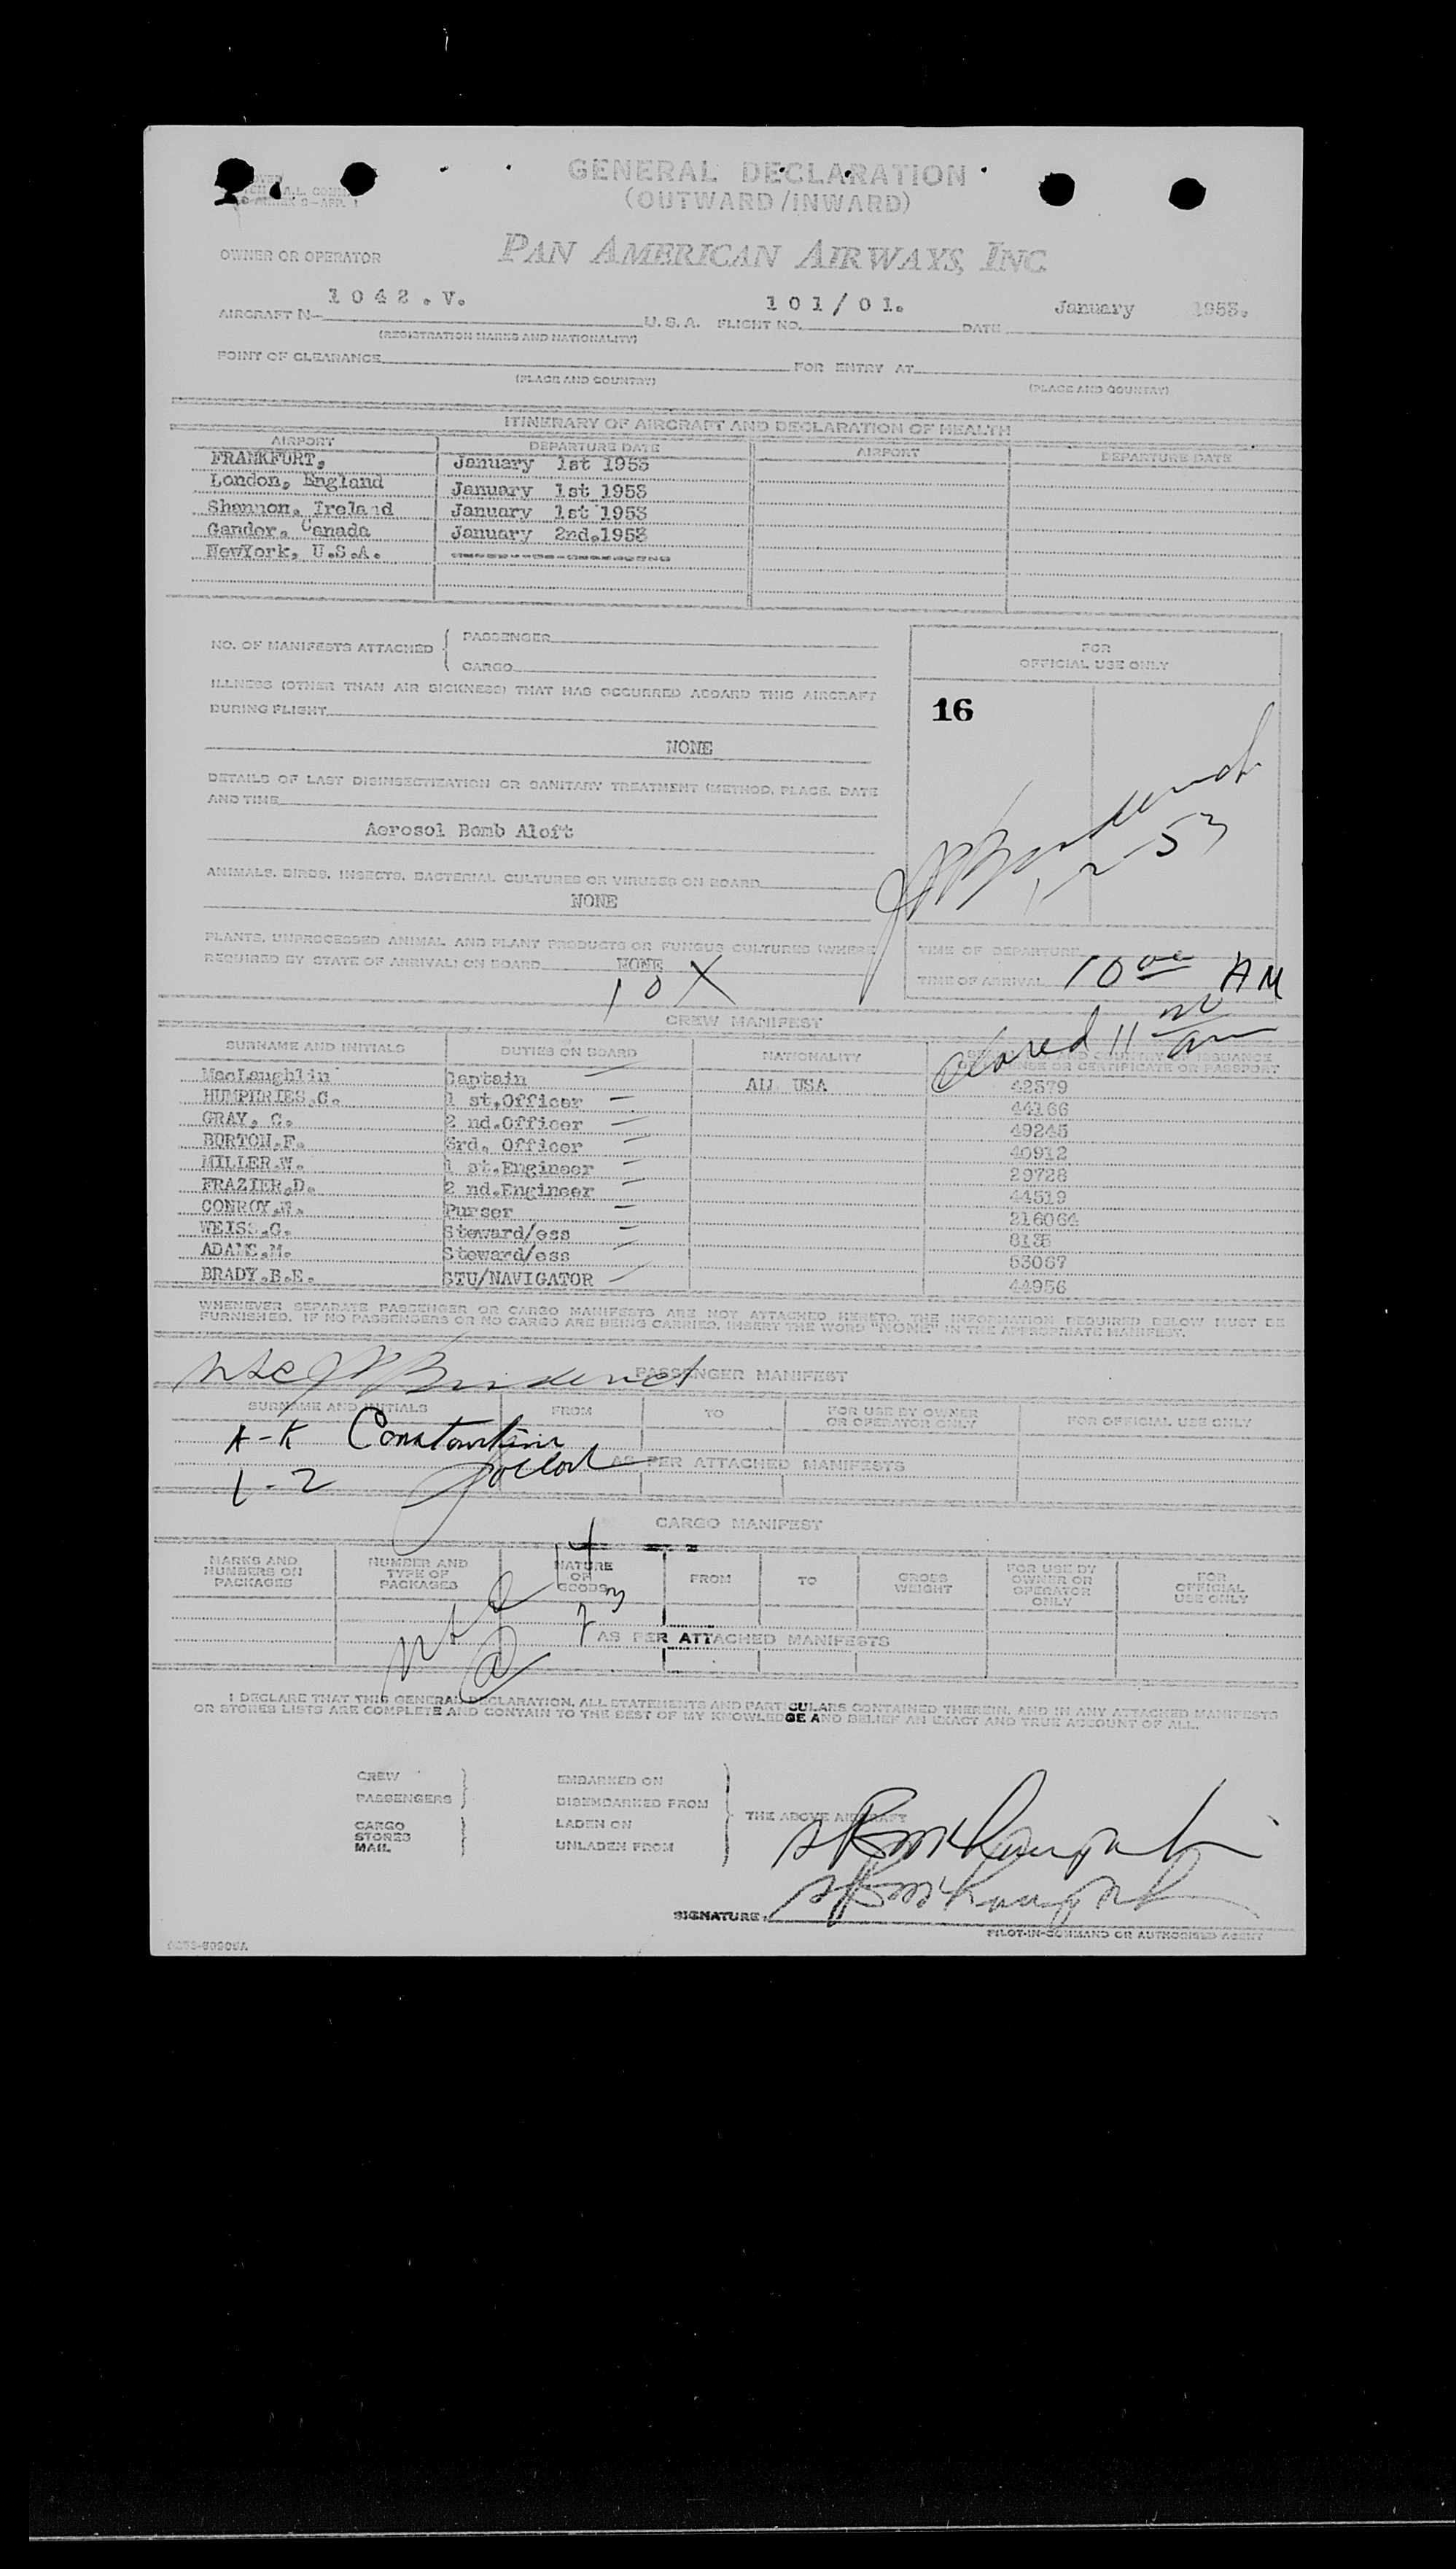 GENERAL DECLARATION
(OUTWARD/INWARD)
OWNER OR OPERATOR PAN AMERICAN AIRWAYS, INC
AIRCRAFT N- 1042.V. U.S.A. FLIGHT NO. 101/01. DATE January 1953.
(REGISTRATION MARKS AND NATIONALITY)
POINT OF CLEARANCE FOR ENTRY AT
(PLACE AND COUNTRY) (PLACE AND COUNTRY)
ITINERARY OF AIRCRAFT AND DECLARATION OF HEALTH
AIRPORT DEPARTURE DATE AIRPORT DEPARTURE DATE
FRANKFURT, January 1st 1953
London, England January 1st 1953
Shannon, Ireland January 1st 1953
Gander, Canada January 2nd.1953
NewYork, U.S.A.
NO. OF MANIFESTS ATTACHED PASSENGER
CARGO
FOR
OFFICIAL USE ONLY
ILLNESS (OTHER THAN AIR SICKNESS) THAT HAS OCCURRED ABOARD THIS AIRCRAFT
DURING FLIGHT
16
NONE
DETAILS OF LAST DISINSECTIZATION OR SANITARY TREATMENT (METHOD, PLACE, DATE
AND TIME
Aerosol Bomb Aloft
1-2-53
ANIMALS, BIRDS, INSECTS, BACTERIAL CULTURES OR VIRUSES ON BOARD
NONE
PLANTS, UNPROCESSED ANIMAL AND PLANT PRODUCTS OR FUNGUS CULTURES (WHERE
REQUIRED BY STATE OF ARRIVAL) ON BOARD NONE
TIME OF DEPARTURE
TIME OF ARRIVAL 10 00 AM
10 X
CREW MANIFEST
Cleared 11 am
SURNAME AND INITIALS DUTIES ON BOARD NATIONALITY AND COUNTRY ISSUANCE
OR CERTIFICATE OR PASSPORT
MacLaughlin Captain ALL USA 42579
HUMPHRIES.C. 1 st.Officer 44166
GRAY, C. 2 nd.Officer 49245
BURTON.F. 3rd. Officer 40912
MILLER.W. 1 st.Engineer 29728
FRAZIER.D. 2 nd.Engineer 44519
CONROY.W. Purser 216064
WEISS.G. Steward/ess
ADAMS.M. Steward/ess 53067
BRADY.B.E. STU/NAVIGATOR 44956
WHENEVER SEPARATE PASSENGER OR CARGO MANIFESTS ARE NOT ATTACHED HERETO, THE INFORMATION REQUIRED BELOW MUST BE
FURNISHED. IF NO PASSENGERS OR NO CARGO ARE BEING CARRIED, INSERT THE WORD "NONE" IN THE APPROPRIATE MANIFEST.
PASSENGER MANIFEST
SURNAME AND INITIALS FROM TO FOR USE BY OWNER
OR OPERATOR ONLY FOR OFFICIAL USE ONLY
A-K
AS PER ATTACHED MANIFESTS
CARGO MANIFEST
MARKS AND
NUMBERS ON
PACKAGES
NUMBER AND
TYPE OF
PACKAGES
NATURE
OF
GOODS
FROM TO
GROSS
WEIGHT
FOR USE BY
OWNER OR
OPERATOR
ONLY
FOR
OFFICIAL
USE ONLY
AS PER ATTACHED MANIFESTS
I DECLARE THAT THIS GENERAL DECLARATION, ALL STATEMENTS AND PARTICULARS CONTAINED THEREIN, AND IN ANY ATTACHED MANIFESTS
OR STORES LISTS ARE COMPLETE AND CONTAIN TO THE BEST OF MY KNOWLEDGE AND BELIEF AN EXACT AND TRUE ACCOUNT OF ALL.
CREW EMBARKED ON
PASSENGERS DISEMBARKED FROM
THE ABOVE AIRCRAFT
CARGO LADEN ON
STORES
MAIL UNLADEN FROM
SIGNATURE
PILOT-IN-COMMAND OR AUTHORISED AGENT